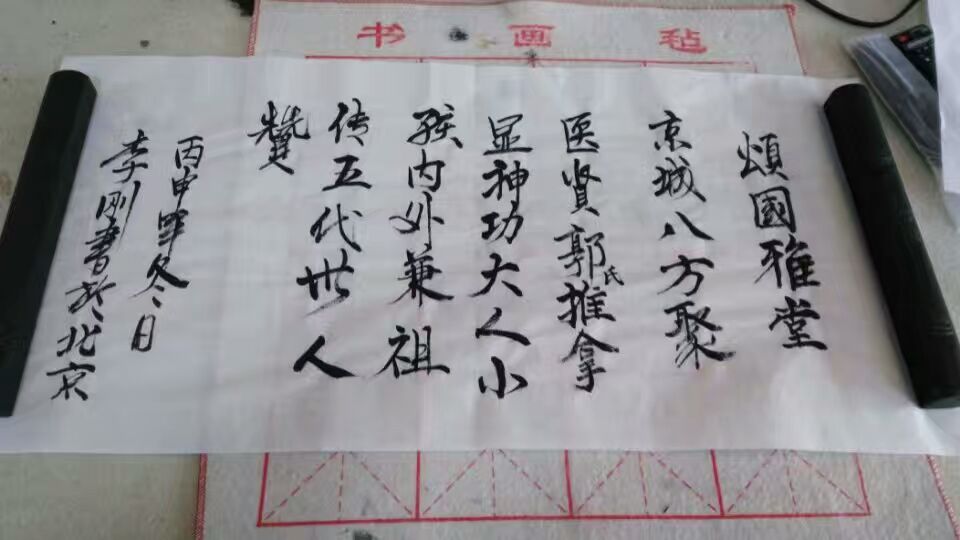 书画毡
頌國雅堂
京城八方聚
医贤郭氏推拿
显神功大人小
孩内外兼祖
传五代世人
赞
丙申年冬日
李刚書於北京